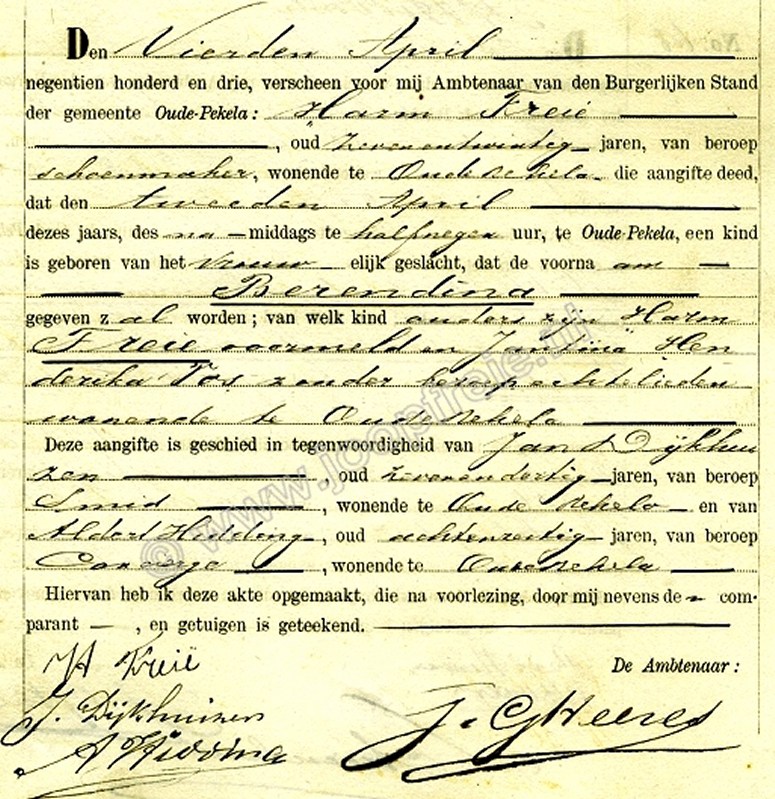 Den Vierden April
negentien honderd en drie, verscheen voor mij Ambtenaar van den Burgerlijken Stand
der gemeente Oude-Pekela: Harm Freie
, oud zevenentwintig jaren, van beroep
schoenmaker, wonende te Oude Pekela die aangifte deed,
dat den tweeden April
dezes jaars, des na-middags te halfnegen uur, te Oude-Pekela, een kind
is geboren van het vrouwelijk geslacht, dat de voornaam
Berendina
gegeven zal worden; van welk kind ouders zijn Harm
Freie voormeld en Jantina Hen
derika Vos zonder beroep echtelieden
wonende te Oude Pekela
Deze aangifte is geschied in tegenwoordigheid van Jan Dijkhui
zen, oud zevenendertig jaren, van beroep
Smid, wonende te Oude Pekela en van
Aldert Hidding, oud achtenzestig jaren, van beroep
wonende te Oude Pekela
Hiervan heb ik deze akte opgemaakt, die na voorlezing, door mij nevens de com-
parant, en getuigen is geteekend.
H Freië
De Ambtenaar:
J. Dijkhuizen
A Hidding
© www.joopfreie.nl